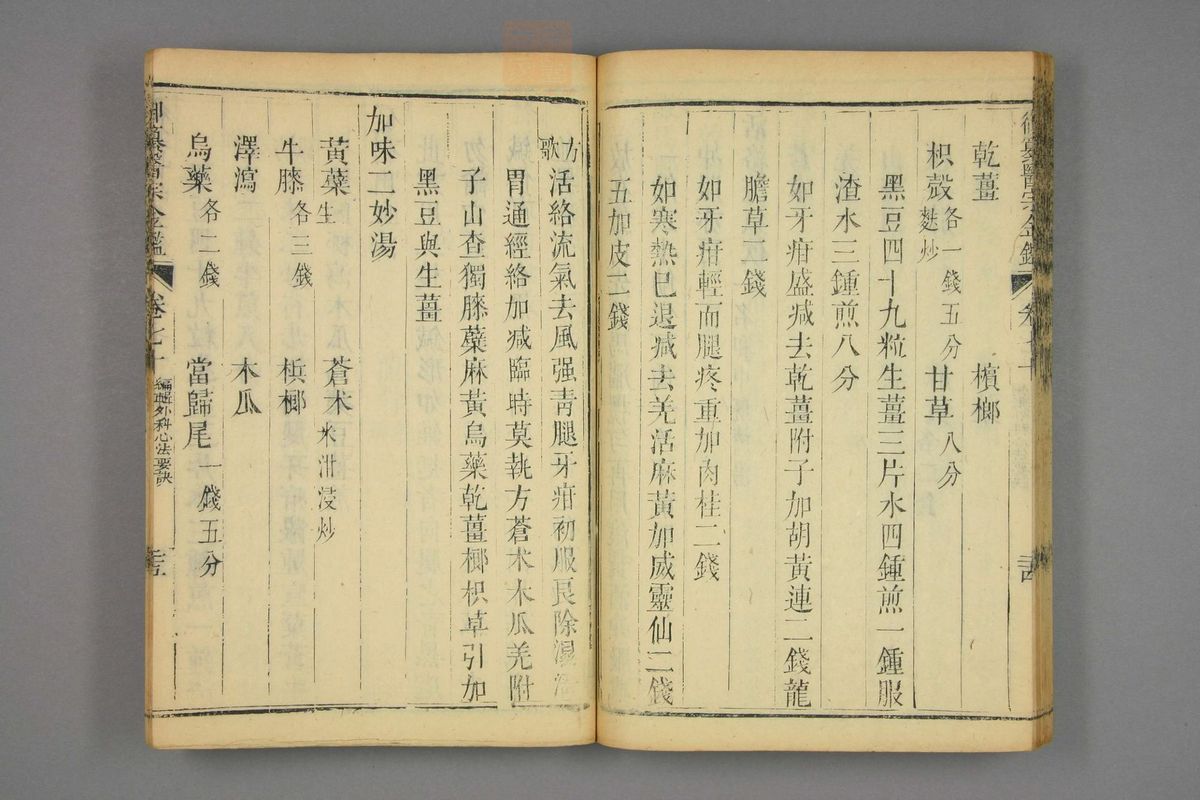 乾薑　檳榔
枳殼各一錢五分麩炒　甘草八分
黑豆四十九粒生薑三片水四鍾煎一鍾服
渣水三鍾煎八分
如牙疳盛減去乾薑附子加胡黃連二錢龍
膽草五錢
如牙疳輕而腿疼重加肉桂二錢
如寒熱已退減去羌活麻黃加威靈仙二錢
五加皮二錢
方歌　活絡流氣去風强青腿牙疳初服良除濕
胃通經絡加減臨時莫執方蒼朮木瓜羌附
子山查獨膝蘗麻黃烏藥乾薑榔枳草引加
黑豆與生薑
加味二妙湯
黃蘗生　蒼朮米泔浸炒
牛膝各三錢　檳榔
澤瀉　木瓜
烏藥各二錢　當歸尾一錢五分
御纂醫宗金鑑　卷七十　編輯外科心法要訣